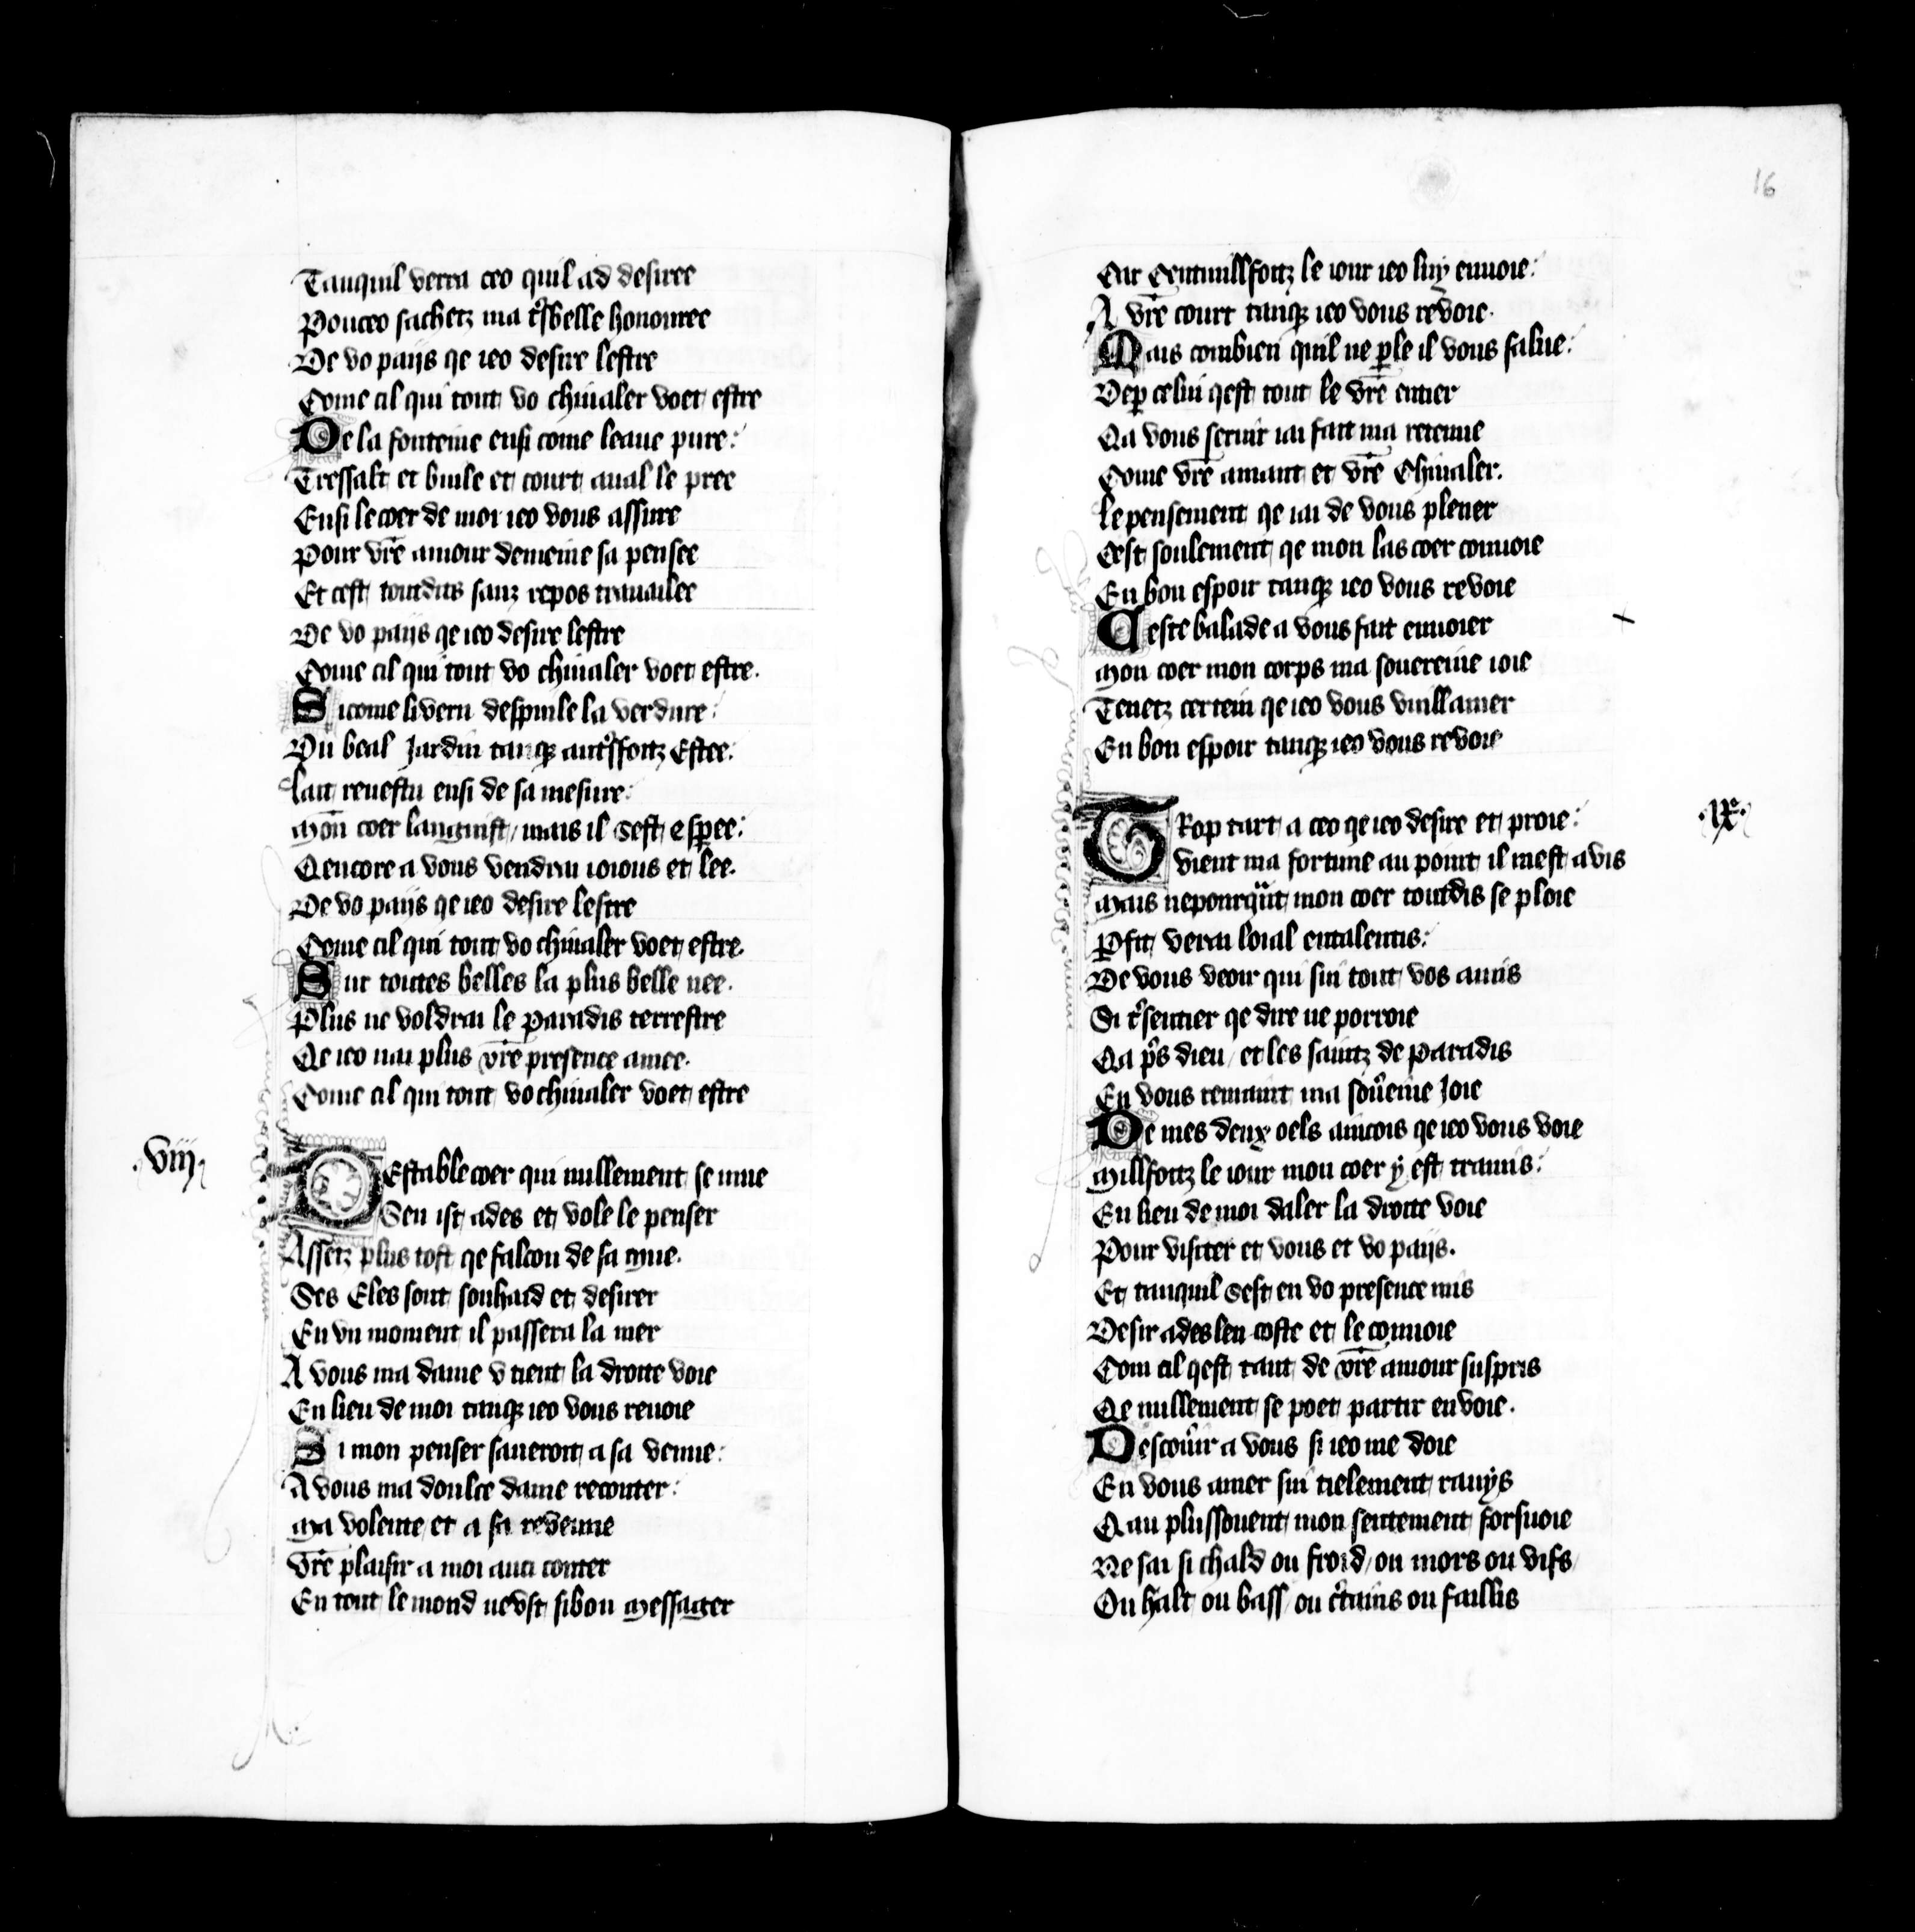 Tanquil verra ceo quil ad desiree
Pourceo sachetz ma tsbelle honouree
De vo paijs qe ieo desire lestre
Come cil qui tout vo chiualer voet estre
De la fonteine ensi come leaue pure
Tressalt et buile et court aual le pree
Ensi le coer de moi ieo vous assure
Pour vre amour demeine sa pensee
Et cest toutdits sanz repos trauailee
De vo paijs qe ieo desire lestre
Come cil qui tout vo chiualer voet estre.
Sicome livern despuile la verdure
Du beal Jardin tanqȝ autsfoitz Estee.
lait reuestu ensi de sa mesure
Mon coer languist / mais il sest espee
Qencore a vous vendrai ioious et lee.
De vo paijs qe ieo desire lestre
Come cil qui tout vo chiualer voet estre.
Sur toutes belles la plus belle nee.
Plus ne voldrai le Paradis terrestre
Qe ieo nai plus vre presence amee.
Come cil qui tout vo chiualer voet estre
.viij.
DEstable coer qui nullement se mue
Sen ist ades et vole le penser
Assetz plus tost qe falcon de sa Mue.
Ses Eles sont souhaid et desirer
En vn moment il passera la mer
A vous ma dame v tient la droite voie
En lieu de moi tanqȝ ieo vous reuoie
Si mon penser saueroit a sa venue
A vous ma doulce dame reconter
Ma volente et a sa revenue
Vre plaisir a moi auci conter
En tout le mond nevst si bon Messager
16
Car Centmillfoitz le iour ieo luy enuoie
A vre court tanqȝ ieo vous revoie.
Mais combien quil ne ple il vous salue
Dep celui qest tout le vre entier
Qa vous seruir iai fait ma retenue
Come vre amant et vre Chiualer.
le pensement qe iai de vous plener
Cest soulement qe mon las coer conuoie
En bon espoir tanqȝ ieo vous revoie
Ceste balade a vous fait enuoier
Mon coer mon corps ma souereine ioie
Tenetz certein qe ieo vous vuill amer
En bon espoir tanqȝ ieo vous revoie
.ixe.
TRop tart a ceo qe ieo desire et proie
vient ma fortune au point il mest avis
Mais nepourqut mon coer toutdis se ploie
Pfit verai loial entalentis
De vous veoir qui sui tout vos amis
Si tsentier qe dire ne porroie
Qa ps dieu / et les saintz de Paradis
En vous remaint ma soueine Joie
De mes deux oels ainçois qe ieo vous voie
Millfoitz le iour mon coer y est tramis
En lieu de moi daler la droite voie
Pour visiter et vous et vo paijs.
Et tanquil sest en vo presence mis
Desir ades len coste et le conuoie
Com cil qest tant de vre amour suspris
Qe nullement se poet partir envoie.
Descouir a vous si ieo me doie
En vous amer sui tielement rauys
Qau plussouent mon sentement forsuoie
Ne sai si chald ou froid / ou mors ou vifs /
Ou halt ou bass / ou ctains ou faillis